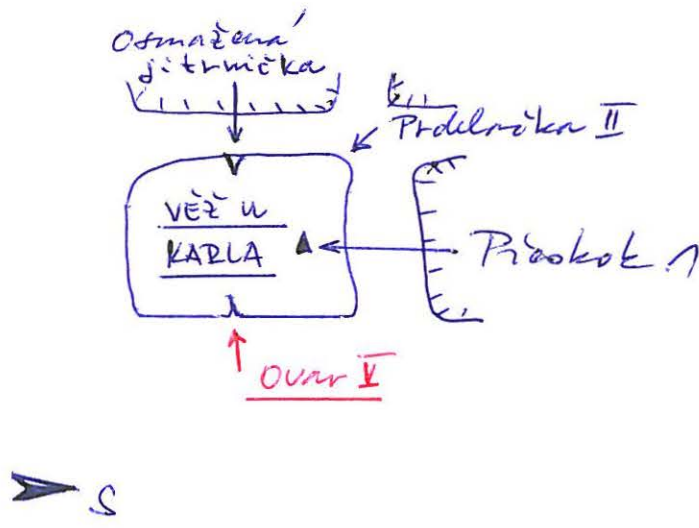 Osmažená
jitrnička
Prdelačka II
VĚŽ U
KARLA
Přeskok 1
Ovar V
S